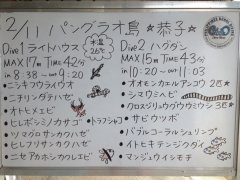 2/11 パングラオ島 ☆恭子☆
Dive 1 ライトハウス
MAX 17m TIME 42分
in 8:38 → out 9:20
水温 26℃
・ニシキフウライウオ
・ニチリンダテハゼ
・オトヒメエビ
・ヒレボシミノカサゴ
・トラフシャコ
・ツマグロサンカクハゼ
・ヒレフリサンカクハゼ
・ニセアカホシカクレエビ
Dive 2 ハグダン
MAX 15m TIME 43分
in 10:20 → 11:03
・オオモンカエルアンコウ 2匹
・シマウミヘビ
・クロスジリュウグウウミウシ 3匹
・サビウツボ
・バブルコーラルシュリンプ
・イトヒキテンジクダイ
・マンジュウイシモチ